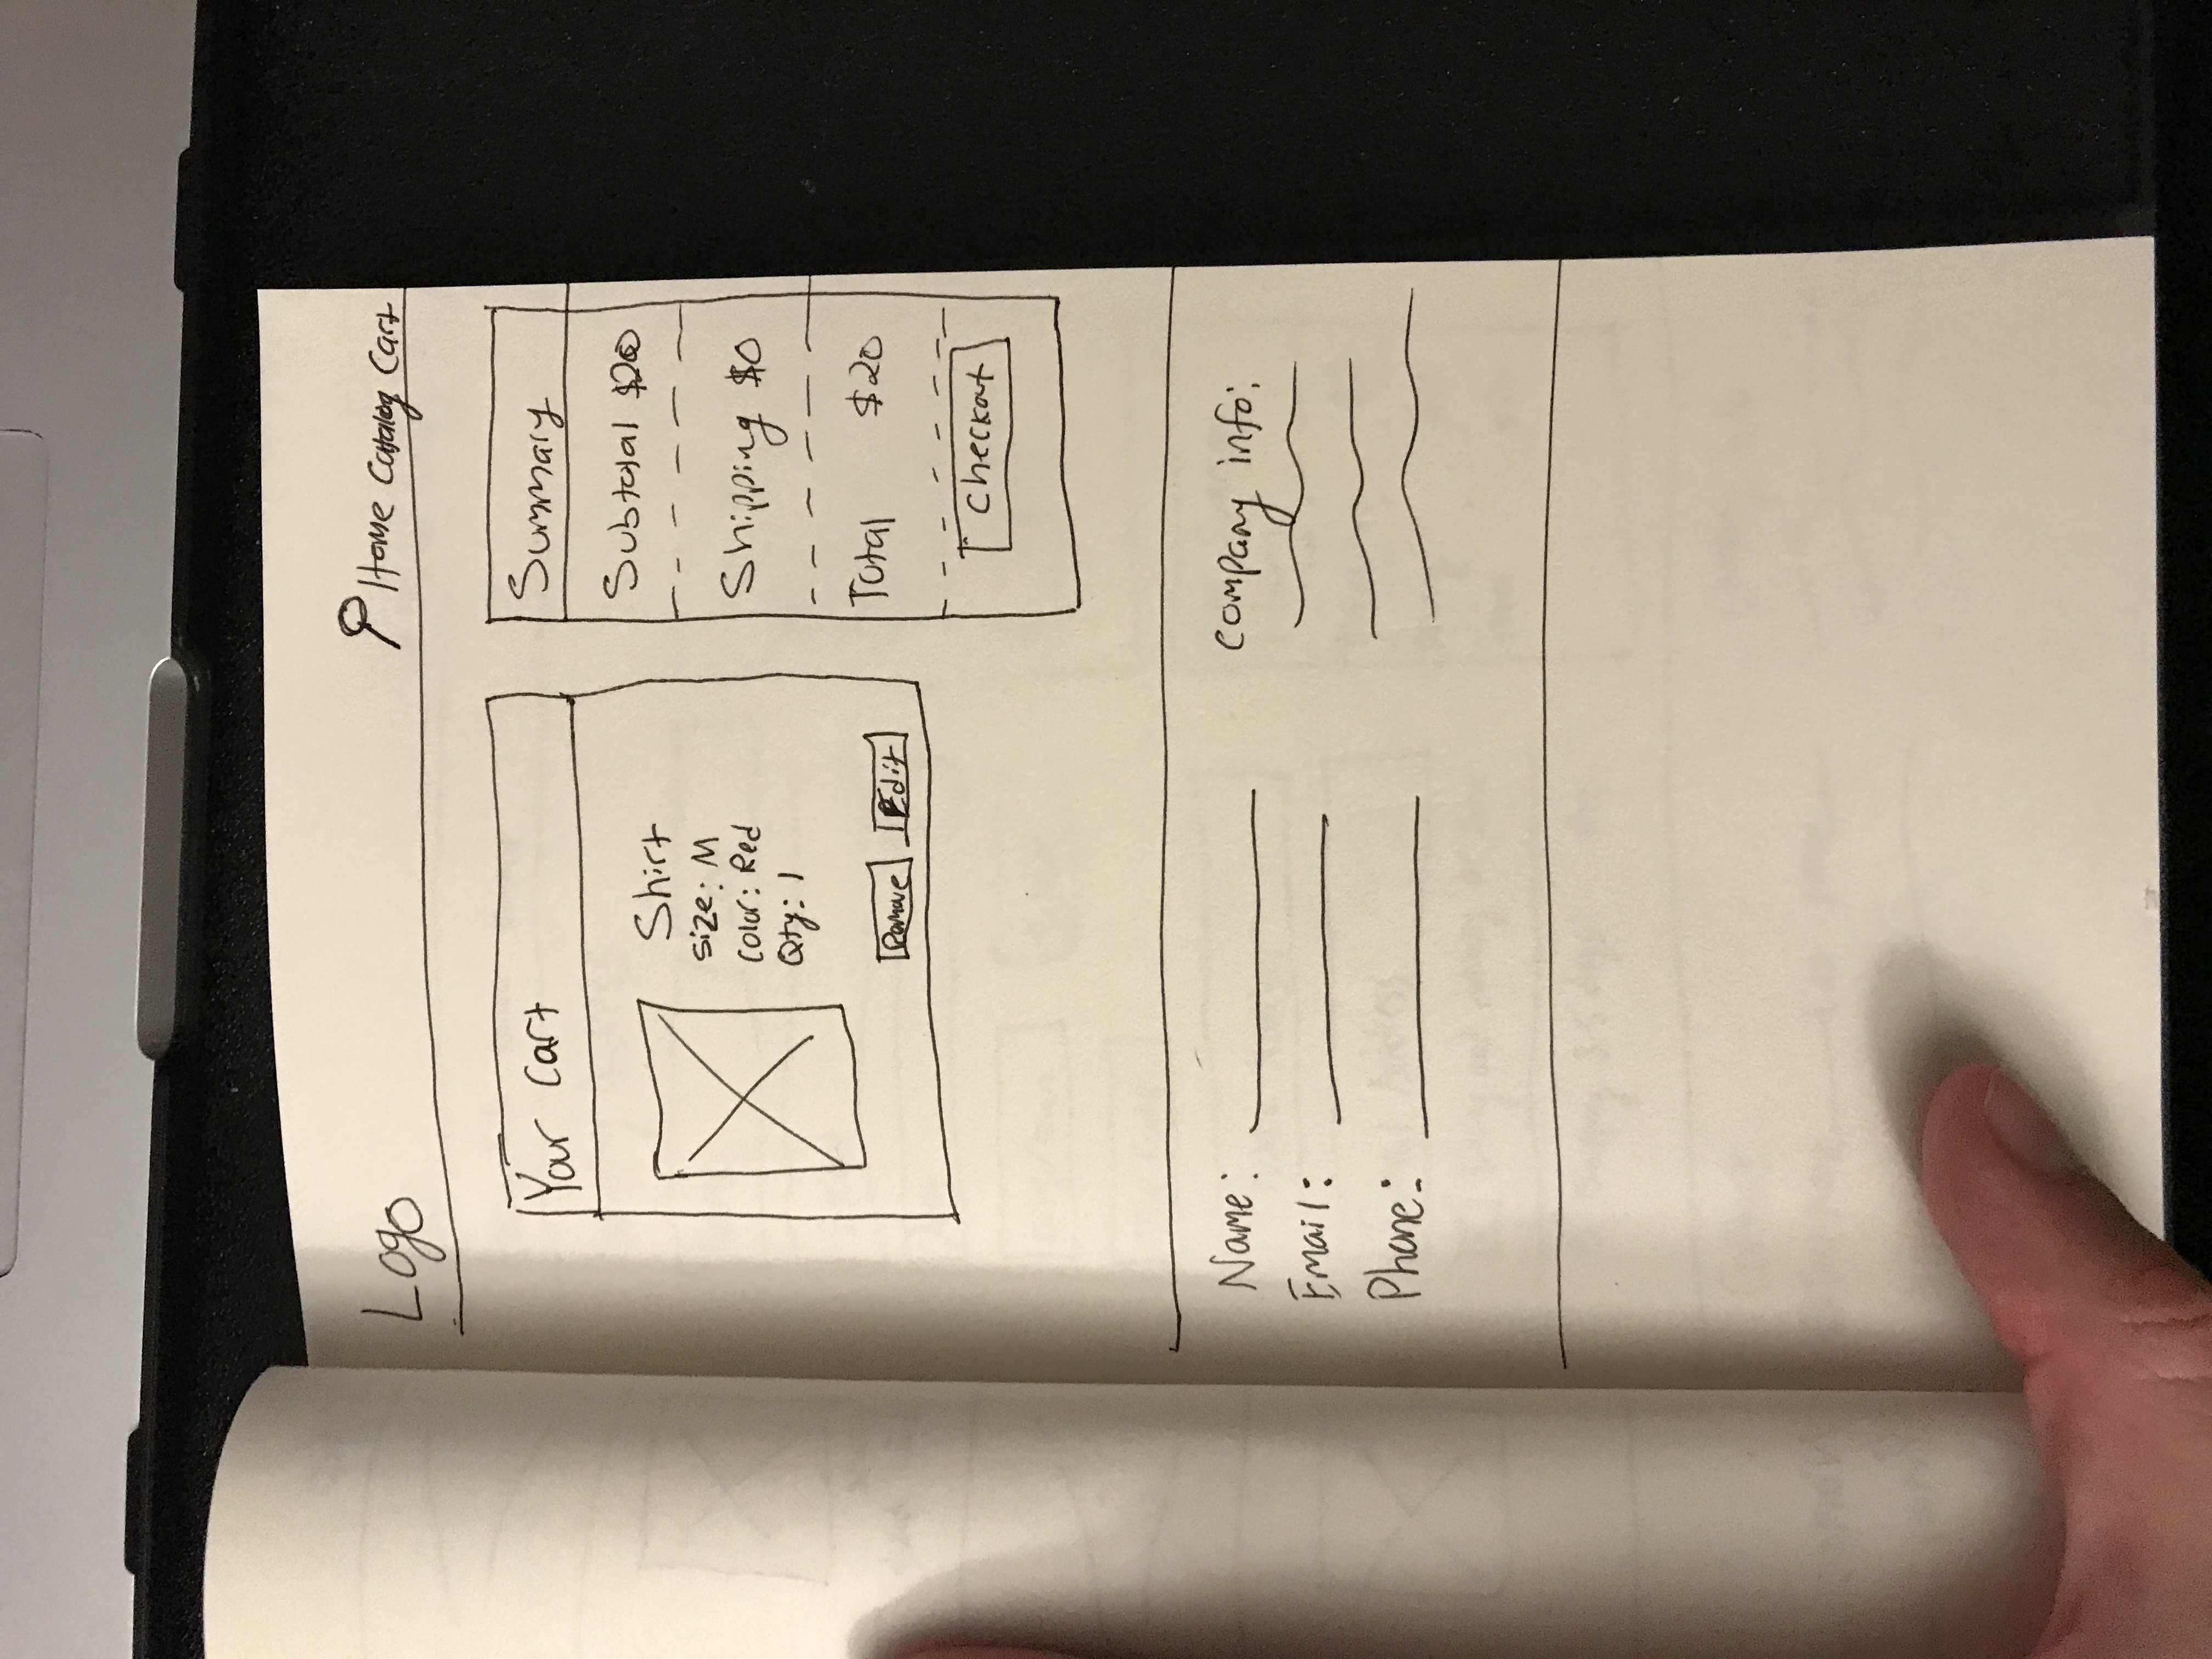 Logo
Home Catalog Cart
Your Cart
Shirt
size: M
color: Red
Qty: 1
Remove Edit
Summary
Subtotal $20
Shipping $0
Total $20
Checkout
Name:
Email:
Phone:
company info: